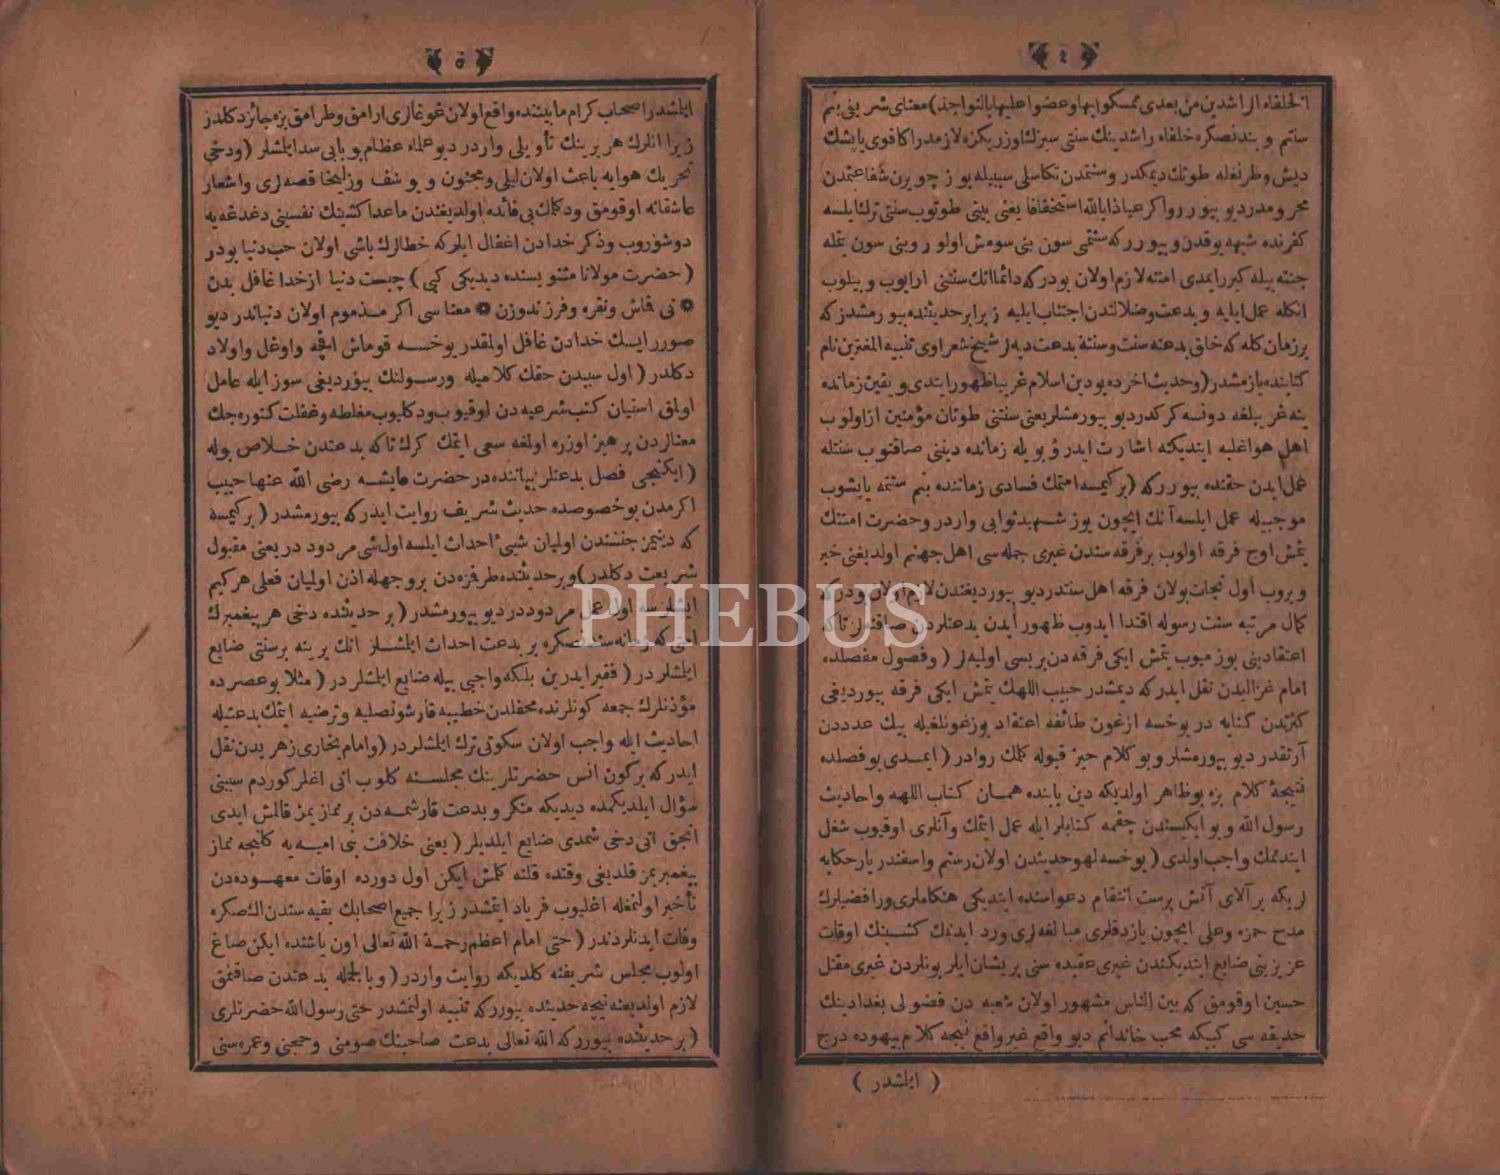 ٤
الخلفاء الراشدين من بعدى تمسكوا بها وعضوا عليها بالنواجذ) معناى شريفى بنم
سنتم و بندنصكره خلفاء راشدينك سنتى سزك اوزريكزه لازمدر اكا قوى ياپشك
ديش وطرنغله طوتك ديمكدر وسنتمدن تكاسلى سببيله يوز چويرن شفاعتمدن
محرومدر ديو بيوررو اكر عياذا بالله استخفافا يعنى بيتى طوتوب سنتى ترك ايلسه
كفرنده شبهه يوقدر و بيوررکه سنتمى سون بنى سومش اولور و بنى سون بنمله
جنته بيله كيرر ايمدى امته لازم اولان بودر كه دائما انك سنتنى ارايوب و بيلوب
انكله عمل ايليه و بدعت وضلالتدن اجتناب ايليه زيرا بر حديثنده بيورمشدر كه
بر زمان كله كه خلق بدعته سنت وسنته بدعت ديه لر شيخ شعراوى تنبيه المغترين نام
كتابنده يازمشدر (وحديث اخرده بودين اسلام غريبا ظهور ايتدى و يقين زمانده
ينه غريبلغه دونسه كركدر ديو بيورمشلر يعنى سنتنى طوتان مؤمنين از اولوب
اهل هوا غلبه ايتديكنه اشارت ايدر و بويله زمانده دينى صاقنوب سنتله
عمل ايدن حقنده بيوررکه (بر كيمسه امتمك فسادى زماننده بنم سنتمه ياپشوب
موجبيله عمل ايلسه آنك ايچون يوز شهيد ثوابى واردر وحضرت امتنك
يتمش اوچ فرقه اولوب بر فرقه سندن غيرى جمله سى اهل جهنم اولديغنى خبر
و يروب اول نجات بولان فرقه اهل سنتدر ديو بيورديغندن لازم اولان بودر كه
كمال مرتبه سنت رسوله اقتدا ايدوب ظهور ايدن بدعتلردن صاقنه لر تا كه
اعتقادينى بوزميوب يتمش ايكى فرقه دن بريسى اوليه لر (وفصول مفصلده
امام غزاليدن نقل ايدر كه ديمشدر حبيب اللهك يتمش ايكى فرقه بيورديغى
كثرتدن كنايه در يوخسه ازغون طائفه اعتقاد بوزغونلغيله بيك عدددن
آرتقدر ديو بيورمشلر و بو كلام حيز قبوله كلمك روادر (ايمدى بو فصلده
نتيجۀ كلام بزه بو ظاهر اولديكه دين يابنده همان كتاب اللهه و احاديث
رسول الله و بو ايكيسندن چقمه كتابلر ايله عمل ايتمك و آنلرى اوقيوب شغل
ايدنمك واجب اولدى (يوخسه لهو حديثدن اولان رستم واسفنديار حكايه
لريكه بر آلاى آتش پرست انتقام دعواسنده ايتديكى هنكاملرى و رافضيلرك
مدح حمزه وعلى ايچون يازدقلرى مبالغه لرى ورد ايدنمك كشينك اوقات
عزيزينى ضايع ايتديكندن غيرى عقيده سنى پريشان ايلر بونلردن غيرى مقتل
حسين اوقومق كه بين الناس مشهور اولان شعبه دن فضولى بغدادينك
حديقه سى كبيكه محب خاندانم ديو واقع غير واقع نيجه كلام بيهوده درج
( ايلشدر )
٥
ايلشدر اصحاب كرام مابيننده واقع اولان غوغالرى ارامق وطرامق بزه جائز دكلدر
زيرا انلرك هر برينك تأويلى واردر ديو علماء عظام بو بابى سد ايلشلر (ودخى
تحريك هوايه باعث اولان ليلى ومجنون و يوسف وزليخا قصه لرى واشعار
عاشقانه اوقومق ودكلمك بى فائده اولديغندن ماعدا كشينك نفسينى دغدغه يه
دوشوروب وذكر خدادن اغفال ايلر كه خطالرك باشى اولان حب دنيا بودر
(حضرت مولانا مثنويسنده ديديكى كبى) چيست دنيا از خدا غافل بدن
❋ نى قماش ونقره وفرزند وزن ❋ معناسى اكر مذموم اولان دنيا ندر ديو
صورر ايسك خدادن غافل اولمقدر يوخسه قوماش اقچه واوغل واولاد
دكلدر (اول سبيدن حقك كلاميله ورسولنك بيورديغى سوز ايله عامل
اولمق استيان كتب شرعيه دن اوقيوب ودكليوب مغلطه وغفلت كتوره جك
معنالردن پرهيز اوزره اولمغه سعى ايتمك كرك تا كه بدعتدن خلاص بوله
(ايكنجى فصل بدعتلر بياننده در حضرت عايشه رضى الله عنها حبيب
اكرمدن بو خصوصده حديث شريف روايت ايدر كه بيورمشدر (بر كيمسه
كه دينمز جنسندن اوليان شيئ احداث ايلسه اول شى مردود در يعنى مقبول
شريعت دكلدر) و بر حديثنده طرفزدن بر وجهله اذن اوليان فعلى هر كيم
ايشلر سه اول عمل مردوددر ديو بيورمشدر (بر حديثنده دخى هر پيغمبرك
امتى كه زمانه سندنصكره بر بدعت احداث ايلشلر انك يرينه بر سنتى ضايع
ايلشلردر (فقير ايدرين بلكه واجبى بيله ضايع ايلشلردر (مثلا بو عصرده
مؤذنلرك جمعه كونلرنده محفلدن خطيبه قارشو تصليه وترضيه ايتمك بدعتيله
احاديث ايله واجب اولان سكوتى ترك ايلشلردر (وامام بخارى زهريدن نقل
ايدر كه بر كون انس حضرتلرينك مجلسنه كلوب انى اغلر كوردم سببنى
سؤال ايلديكمده ديديكه منكر و بدعت قارشمه دن بر نمازيمز قالمش ايدى
انجق انى دخى شمدى ضايع ايلديلر (يعنى خلافت بنى اميه يه كلنجه نماز
پيغمبريمز قلديغى وقتده قلنه كلمش ايكن اول دورده اوقات معهوده دن
تأخير اولنمغله اغليوب فرياد ايتمشدر زيرا جميع اصحابك بقيه سندن الك صكره
وفات ايدنلردندر (حتى امام اعظم رحمة الله تعالى اون ياشنده ايكن صاغ
اولوب مجلس شريفنه كلديكه روايت واردر (و بالجمله بدعتدن صاقنمق
لازم اولديغنه نيجه حديثده بيوررکه تنبيه اولنمشدر حتى رسول الله حضرتلرى
(بر حديثنده بيوررکه الله تعالى بدعت صاحبنك صومنى وحجنى وعمره سنى
PHEBUS